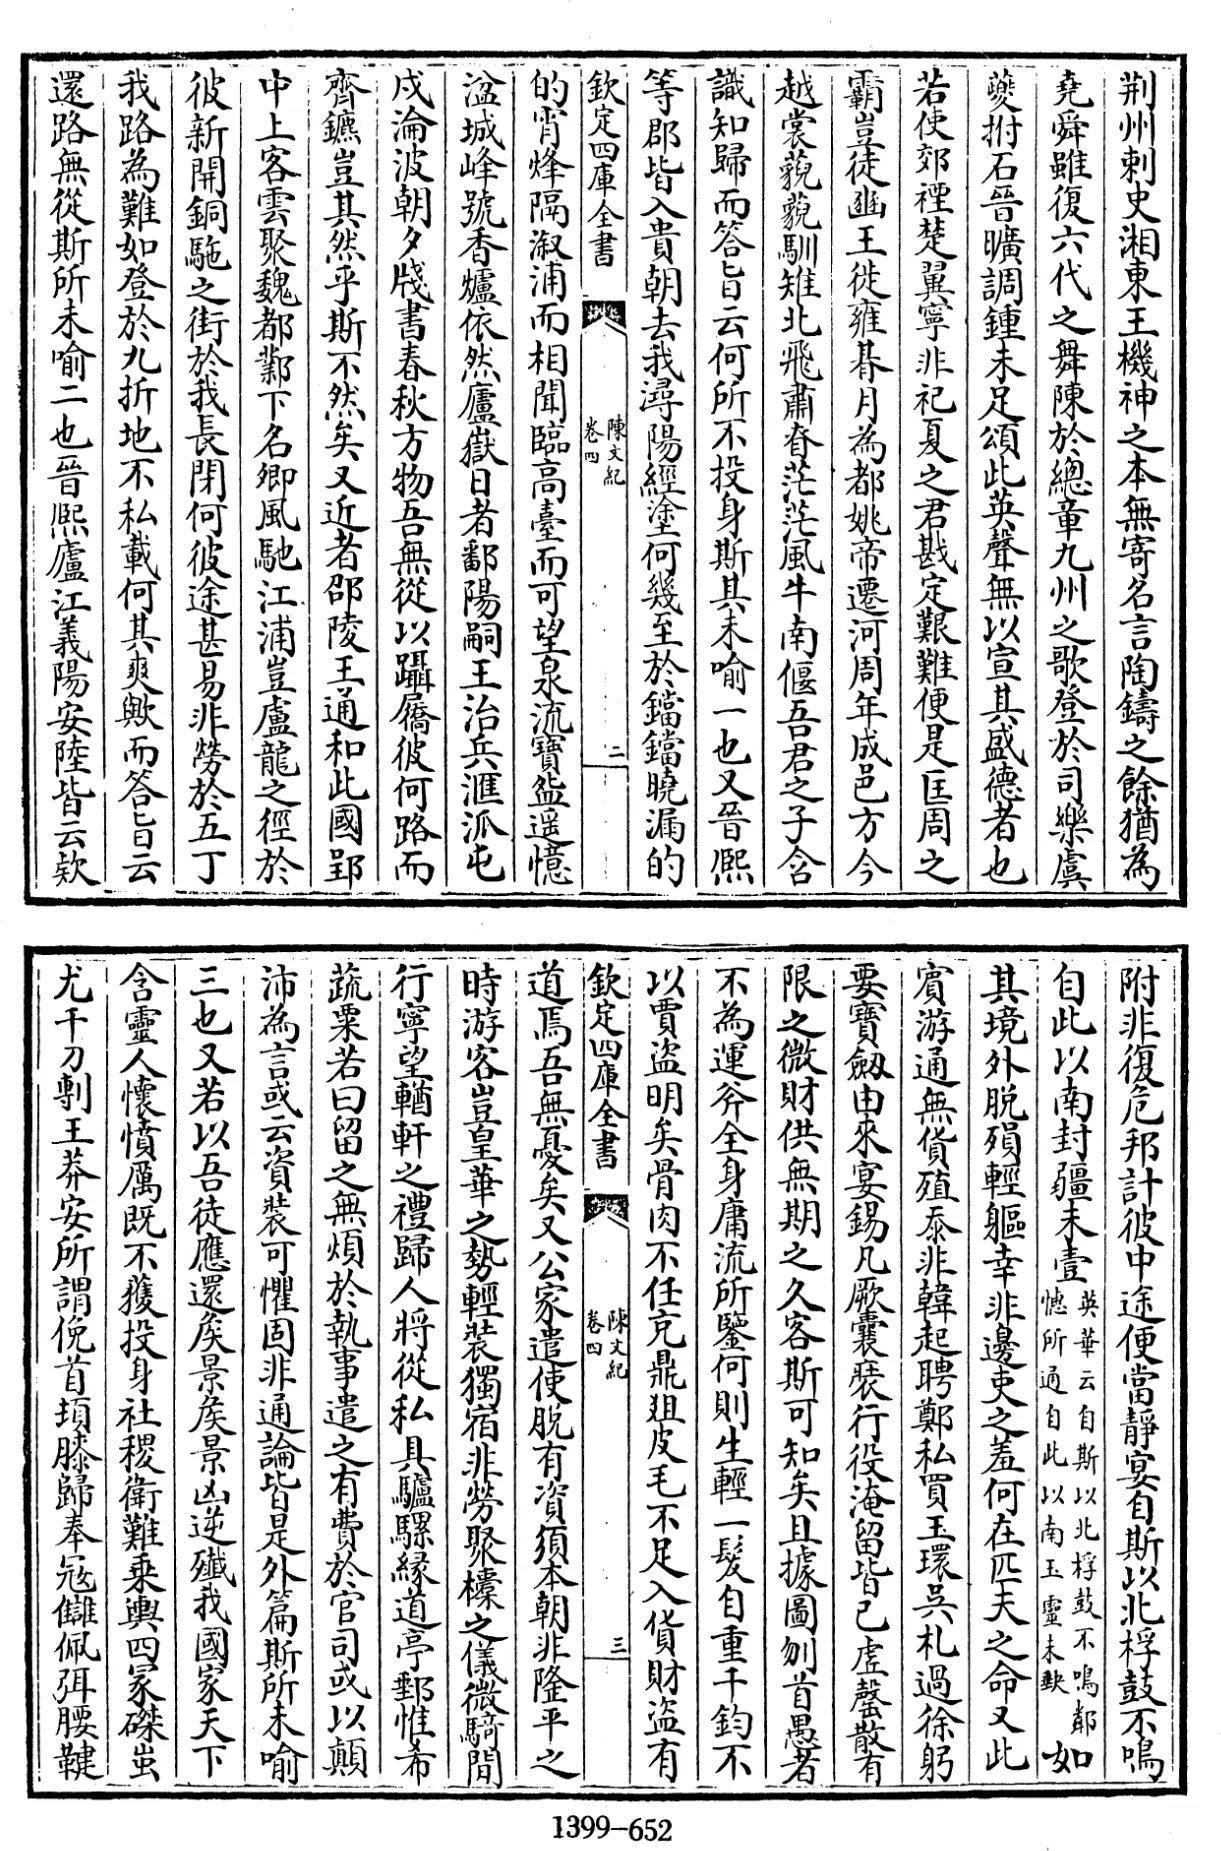 荆州刺史湘東王機神之本無寄名言陶鑄之餘猶為
堯舜雖復六代之舞陳於總章九州之歌登於司樂虞
夔拊石晉曠調鍾未足頌此英聲無以宣其盛德者也
若使郊禋楚翼寧非祀夏之君戡定艱難便是匡周之
霸豈徒豳王徙雍朞月為都姚帝遷河周年成邑方今
越裳藐藐馴雉北飛肅眘茫茫風牛南偃吾君之子含
識知歸而答旨云何所不投身斯其未喻一也又晉熙
等郡皆入貴朝去我潯陽經塗何幾至於鐺鐺曉漏的
欽定四庫全書
陳文紀
卷四
二
的宵烽隔溆浦而相聞臨高臺而可望泉流寶盌遥憶
湓城峰號香爐依然廬嶽日者鄱陽嗣王治兵滙派屯
戍淪波朝夕牋書春秋方物吾無從以躡屩彼何路而
齊鑣豈其然乎斯不然矣又近者邵陵王通和此國郢
中上客雲聚魏都鄴下名卿風馳江浦豈盧龍之徑於
彼新開銅駞之街於我長閉何彼途甚易非勞於五丁
我路為難如登於九折地不私載何其爽歟而答旨云
還路無從斯所未喻二也晉熈廬江義陽安陸皆云欵
附非復危邦計彼中途便當靜宴自斯以北桴鼓不鳴
自此以南封疆未壹英華云自斯以北桴鼓不鳴鄰
憾所通自此以南玉靈未軼如
其境外脱殞輕軀幸非邊吏之羞何在匹夫之命又此
賓游通無貨殖忝非韓起聘鄭私買玉環吳札過徐躬
要寶劔由來宴錫凡厥囊裝行役淹留皆已虛罄散有
限之微財供無期之久客斯可知矣且據圖刎首愚者
不為運斧全身庸流所鑒何則生輕一髮自重千鈞不
以賈盜明矣骨肉不任充鼎俎皮毛不足入貨財盜有
欽定四庫全書
陳文紀
卷四
三
道焉吾無憂矣又公家遣使脱有資須本朝非隆平之
時游客豈皇華之勢輕裝獨宿非勞聚櫜之儀微騎閒
行寧望輶軒之禮歸人將從私具驢騾緣道亭郵惟希
蔬粟若曰留之無煩於執事遣之有費於官司或以顛
沛為言或云資裝可懼固非通論皆是外篇斯所未喻
三也又若以吾徒應還矦景矦景凶逆殲我國家天下
含靈人懷憤厲既不獲投身社稷衛難乗輿四冢磔蚩
尤千刀剸王莽安所謂俛首頓膝歸奉冦讎佩弭腰鞬
1399-652